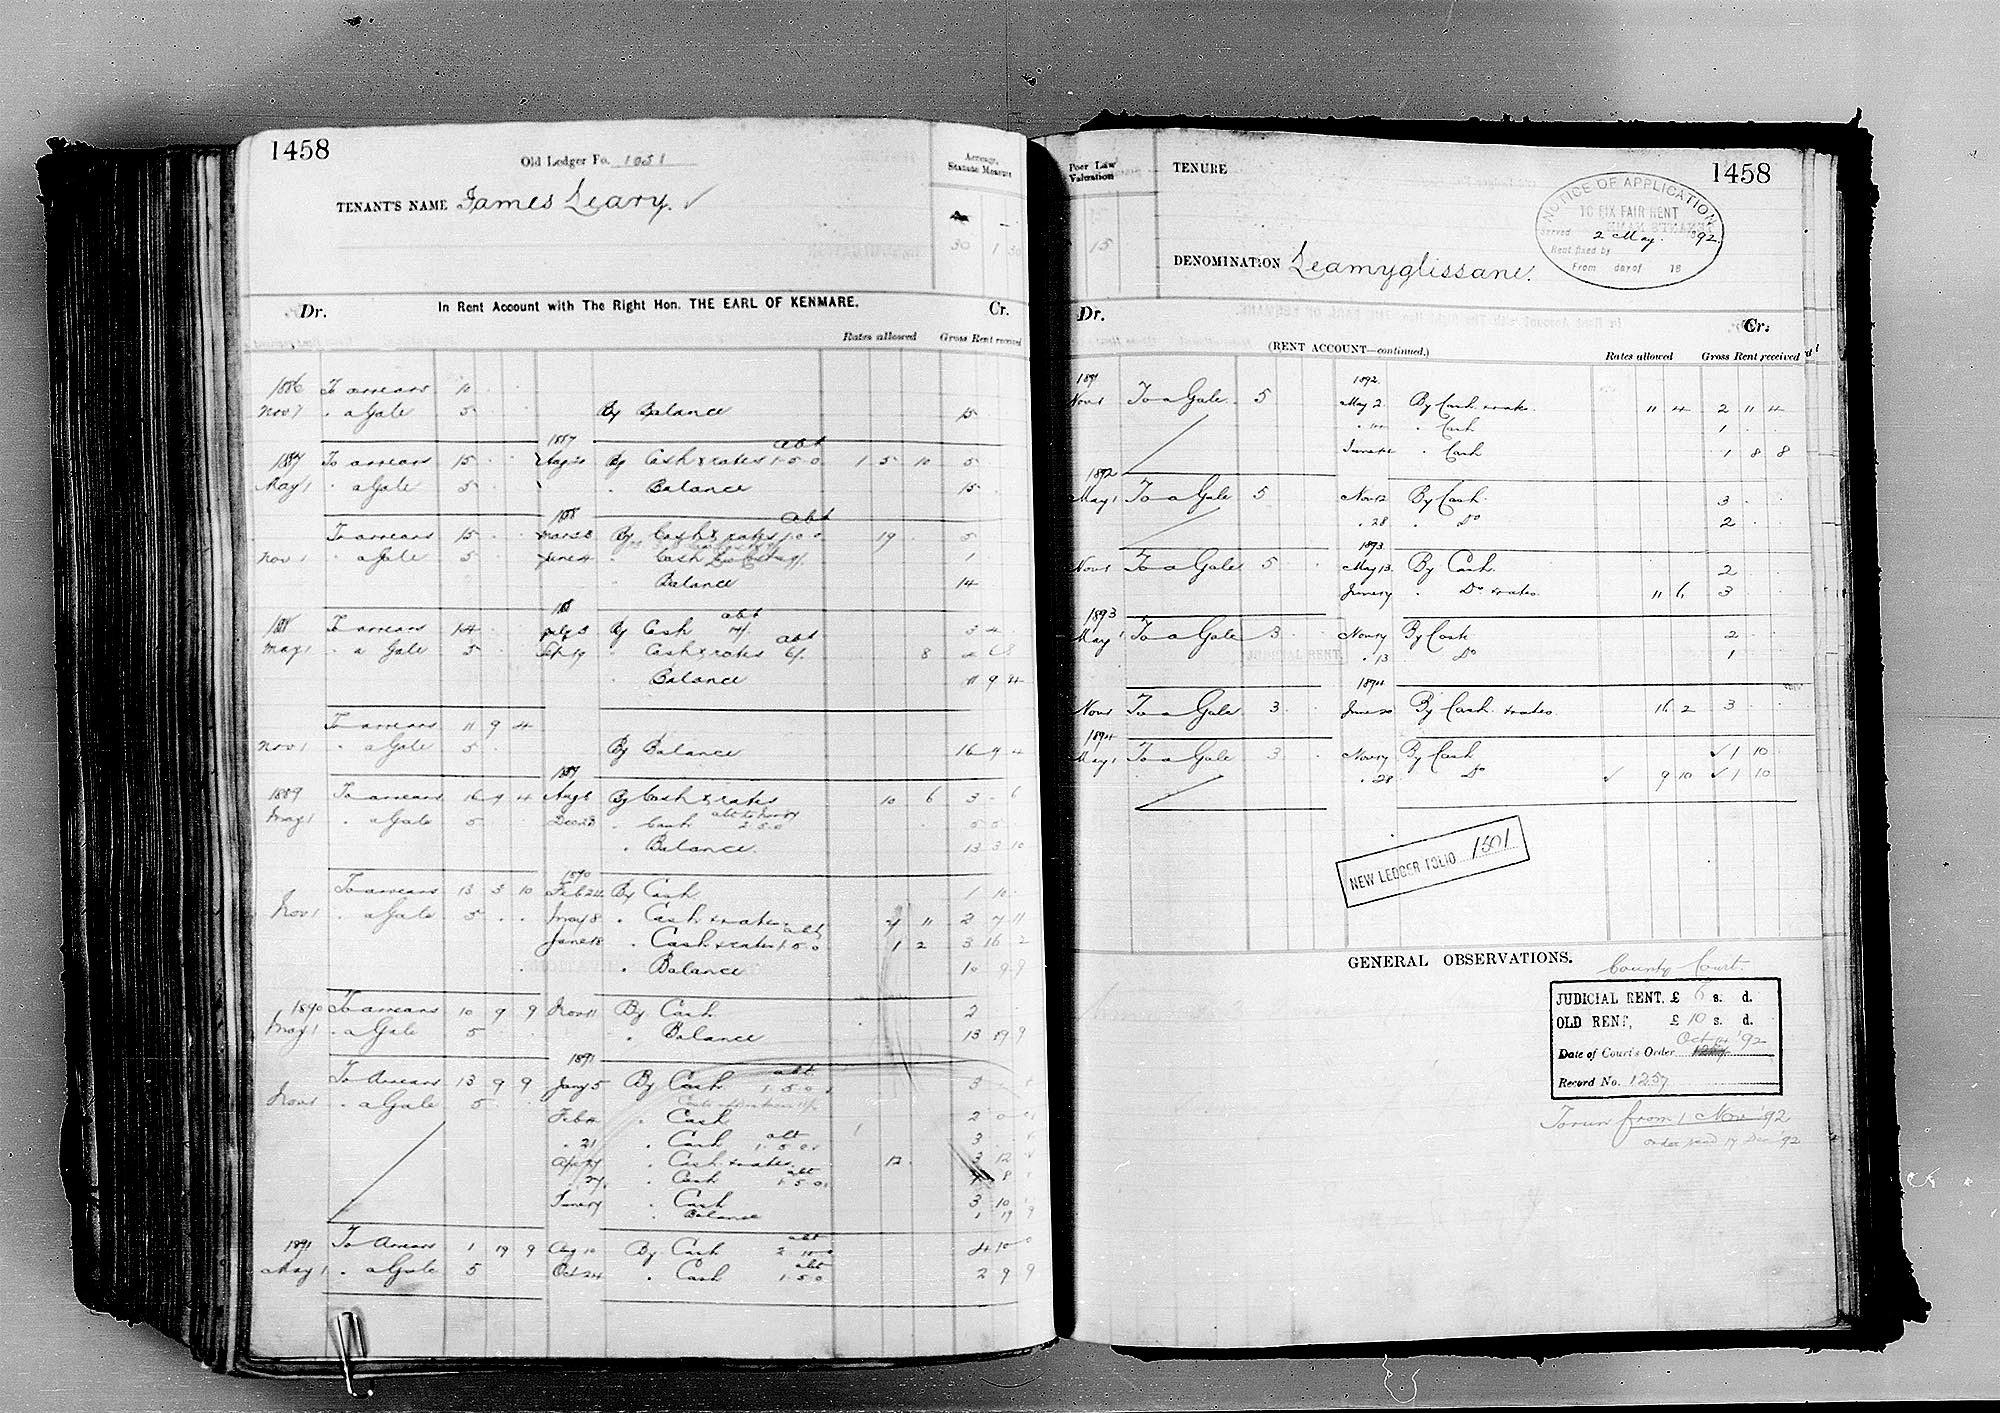 1458
Old Ledger Fo. 1051
Acreage, Statute Measure
TENANT'S NAME James Leary. ✓
30 1 30
Dr. In Rent Account with The Right Hon. THE EARL OF KENMARE. Cr.
Rates allowed Gross Rent received
1886 To arrears 10
Nov 1 " a Gale 5 By Balance 15
1887 abt
1887 To arrears 15 Aug By Cash & rates 1.5.0 1 5 10 5
May 1 " a Gale 5 " Balance 15
1888 abt
To arrears 15 Mar 28 By Cash & rates 1.0.0 19 5
Nov 1 " a Gale 5 June 4 " Cash 1
Balance 14
188 abt
188 To arrears 14 July 3 By Cash 14/. 3 4
May 1 " a Gale 5 Sep 19 " Cash & rates 6/. abt 8 6 8
" Balance 11 9 4
To arrears 11 9 4
Nov 1 " a Gale 5 By Balance 16 9 4
1889
1889 To arrears 16 9 4 Aug 8 By Cash & rates 10 6 3 6
May 1 " a Gale 5 Dec 23 " Cash 2.5.0 5 5
" Balance 13 3 10
1890
To arrears 13 3 10 Feb 24 By Cash 1 10
Nov 1 " a Gale 5 May 8 " Cash & rates 7 11 2 7 11
June 18 " Cash & rates abt 1.5.0 1 2 3 16 2
" Balance 10 9 9
1890 To arrears 10 9 9 Nov 11 By Cash 2
May 1 " a Gale 5 " Balance 13 9 9
1891
To Arrears 13 9 9 Jany 5 By Cash abt 1.5.0 3
Nov 1 " a Gale 5
Feb " Cash 2 0 0
" 21 " Cash abt 1.5.0 3
Apr " Cash & rates 12 3 12
27 " Cash abt 1.5.0 8
June 17 " Cash 3 10
" Balance 1 19 9
1891 To Arrears 1 19 9 Aug 10 By Cash abt 2.10.0 4 10 0
May 1 " a Gale 5 Oct 24 " Cash abt 1.5.0 2 9 9
Poor Law Valuation
TENURE
1458
15
NOTICE OF APPLICATION
TO FIX FAIR RENT
Served 2 May. 1892
Rent fixed by
From day of 18
DENOMINATION Leamyglissane.
Dr. Cr.
(RENT ACCOUNT—continued.) Rates allowed Gross Rent received
1891 1892
Nov 1 To a Gale 5 May 2 By Cash & rates 11 4 2 11 4
" Cash 1
June " Cash 1 8 8
1892
May 1 To a Gale 5 Nov 12 By Cash 3
" 28 " Do 2
1893
Nov 1 To a Gale 5 May 13 By Cash 2
June 17 " Do & rates 11 6 3
1893
May 1 To a Gale 3 Nov 17 By Cash 2
JUDICIAL RENT. " 13 Do 1
1894
Nov 1 To a Gale 3 June 20 By Cash & rates 16 2 3
1894
May 1 To a Gale 3 Nov 17 By Cash ✓ 1 10
" 28 Do ✓ 9 10 ✓ 1 10
NEW LEDGER FOLIO 1501
GENERAL OBSERVATIONS.
County Court.
JUDICIAL RENT, £ 6 s. d.
OLD RENT, £ 10 s. d.
Oct 14 '92
Date of Court's Order
Record No. 1257
from 1 Nov '92
Order read 17 Dec '92